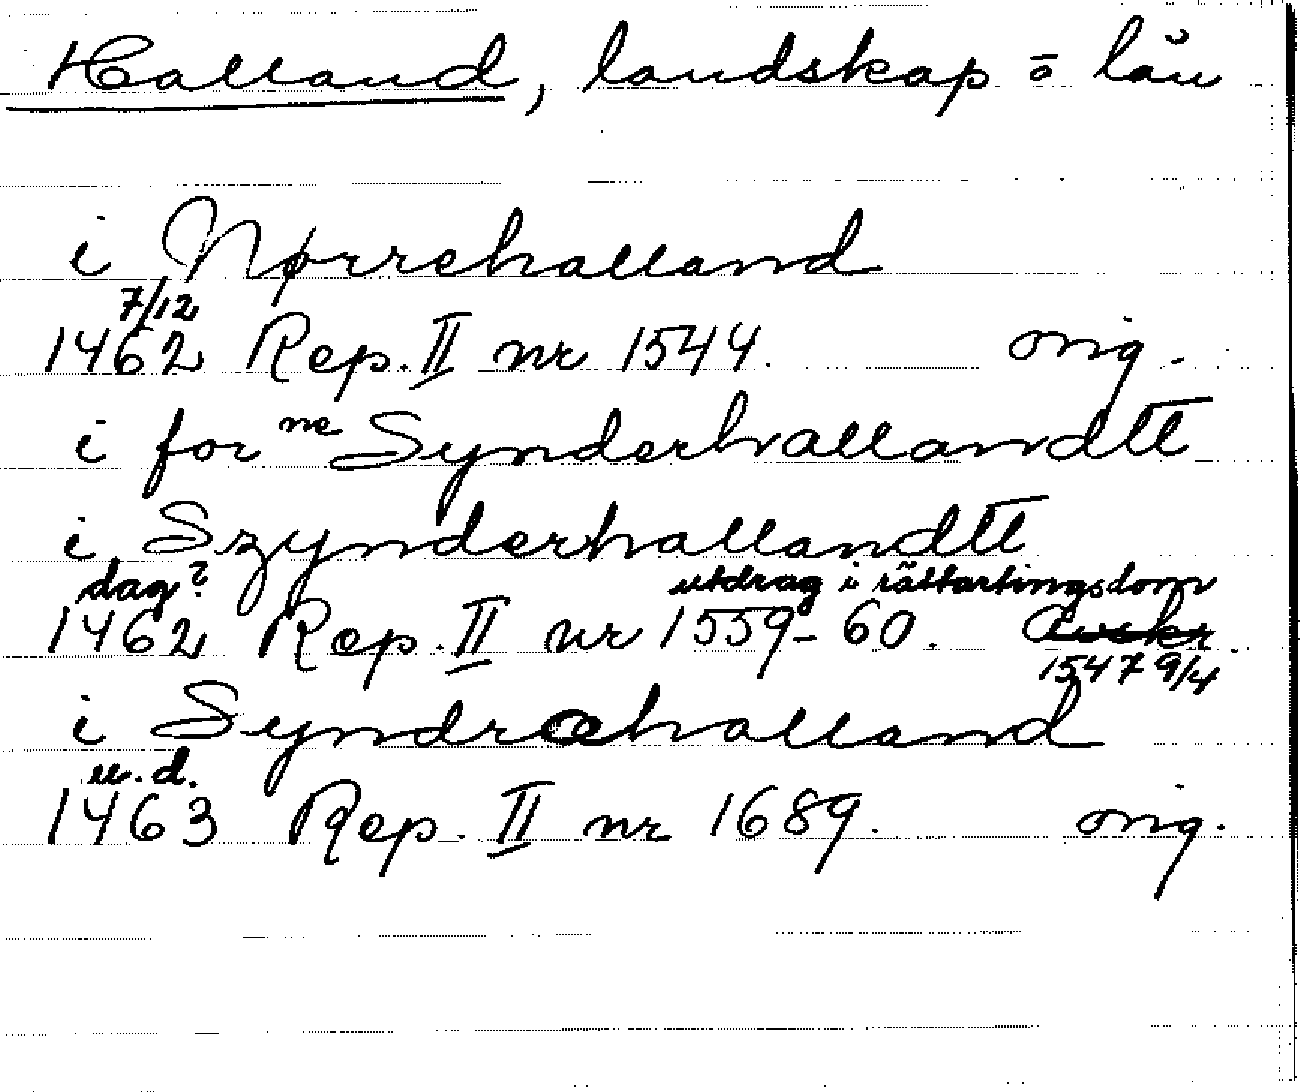 Halland, landskap o län
i Nørrehalland
7/12
1462 Rep. II nr 1544. orig.
i for ne Synderhallandtt
i Szynderhallandtt
dag? utdrag i rättartingsdom
1462 Rep. II nr 1559-60. Avskr.
1547 9/4
i Syndrahalland
u.d.
1463 Rep. II nr 1689. orig.